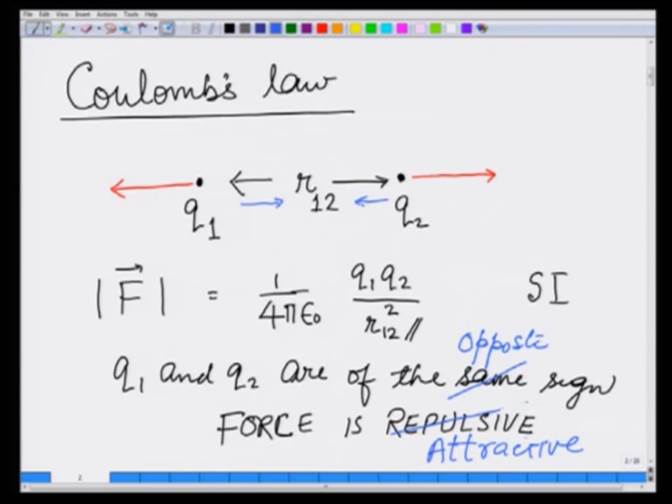 File Edit View Insert Actions Tools Help
Coulomb's law
r12
q1 q2
|F| = 1/4πϵ0 q1q2/r12² SI
Opposite
q1 and q2 are of the same sign
FORCE IS REPULSIVE
Attractive
2
2 / 20